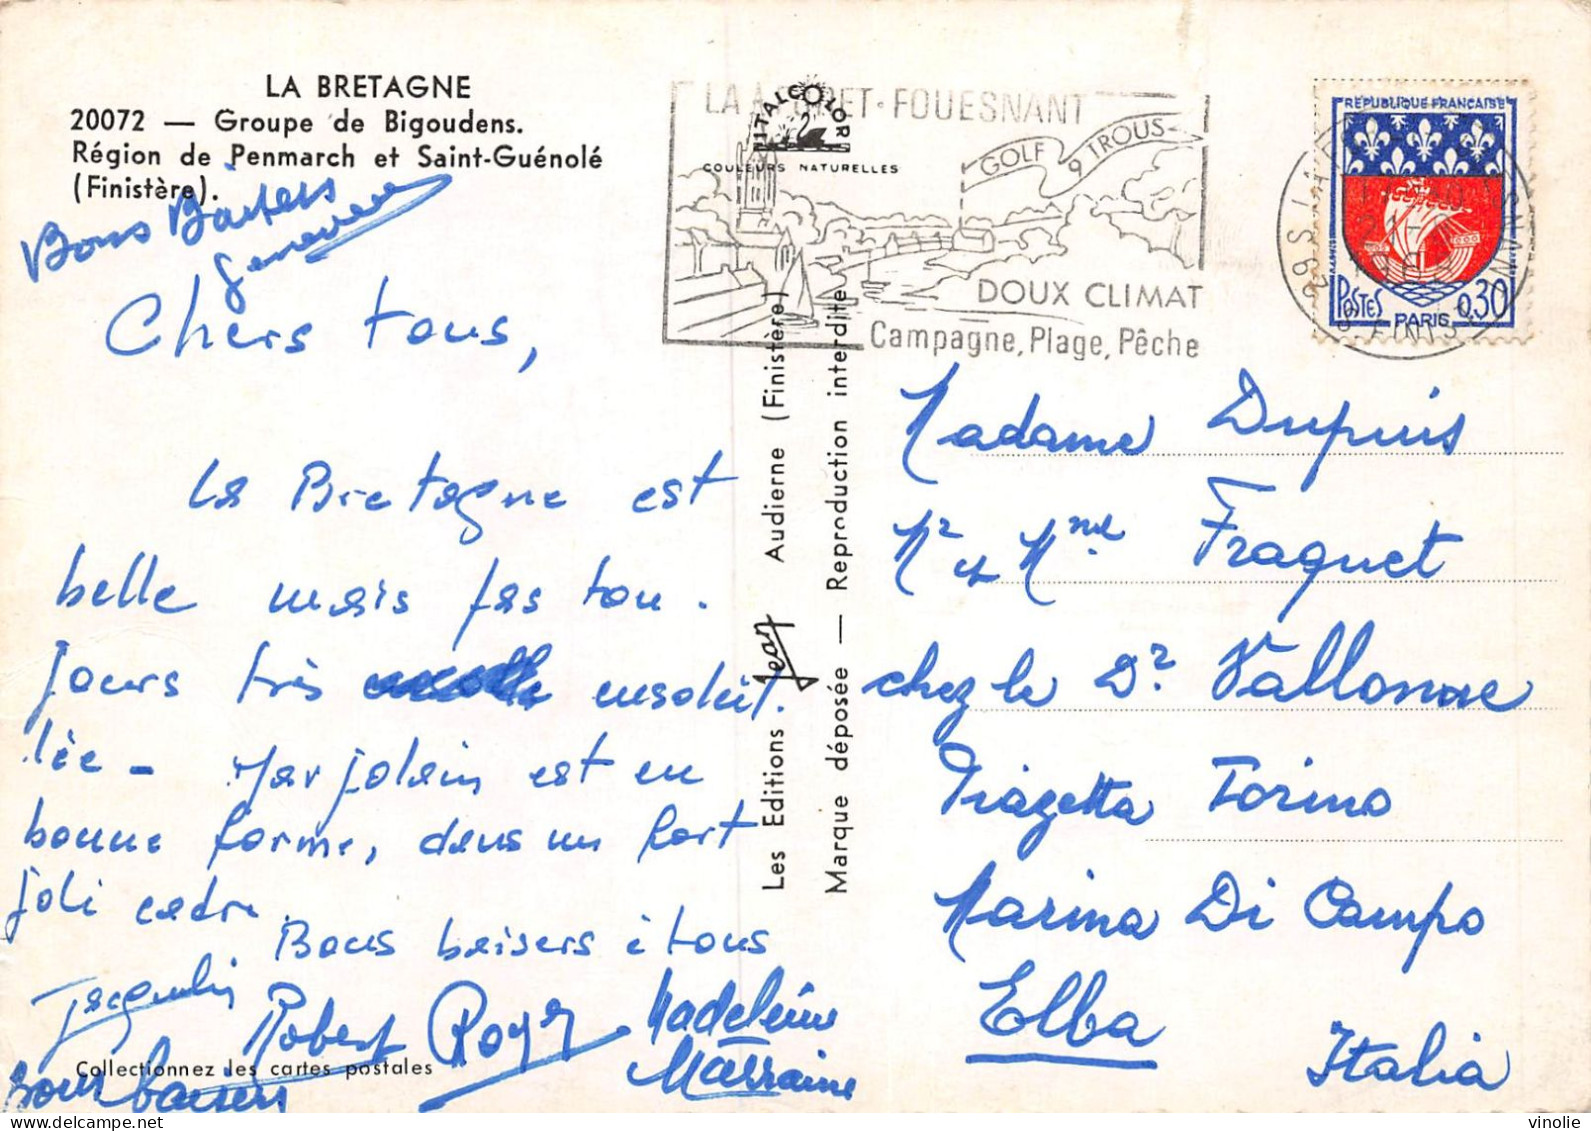 LA BRETAGNE
20072 — Groupe de Bigoudens.
Région de Penmarch et Saint-Guénolé
(Finistère).
Bons Baisers
Geneviève
Chers tous,
La Bretagne est
belle mais pas tou-
jours très ensoleil-
lée - Marjolain est en
bonne forme, dans un fort
joli cadre.
Bons baisers à tous
Jacqueline
Robert Roger Madeleine
Marraine
Bons baisers
Collectionnez les cartes postales
Les Editions Jean Audierne (Finistère)
Marque déposée — Reproduction interdite
ITALCOLOR
COULEURS NATURELLES
LA FORET-FOUESNANT
GOLF 9 TROUS
DOUX CLIMAT
Campagne, Plage, Pêche
REPUBLIQUE FRANCAISE
POSTES 0,30
PARIS
Madame Dupuis
Mr et Mme Fraquet
chez le Dr Vallonne
Piazetta Torino
Marina Di Campo
Elba
Italia
vinolie